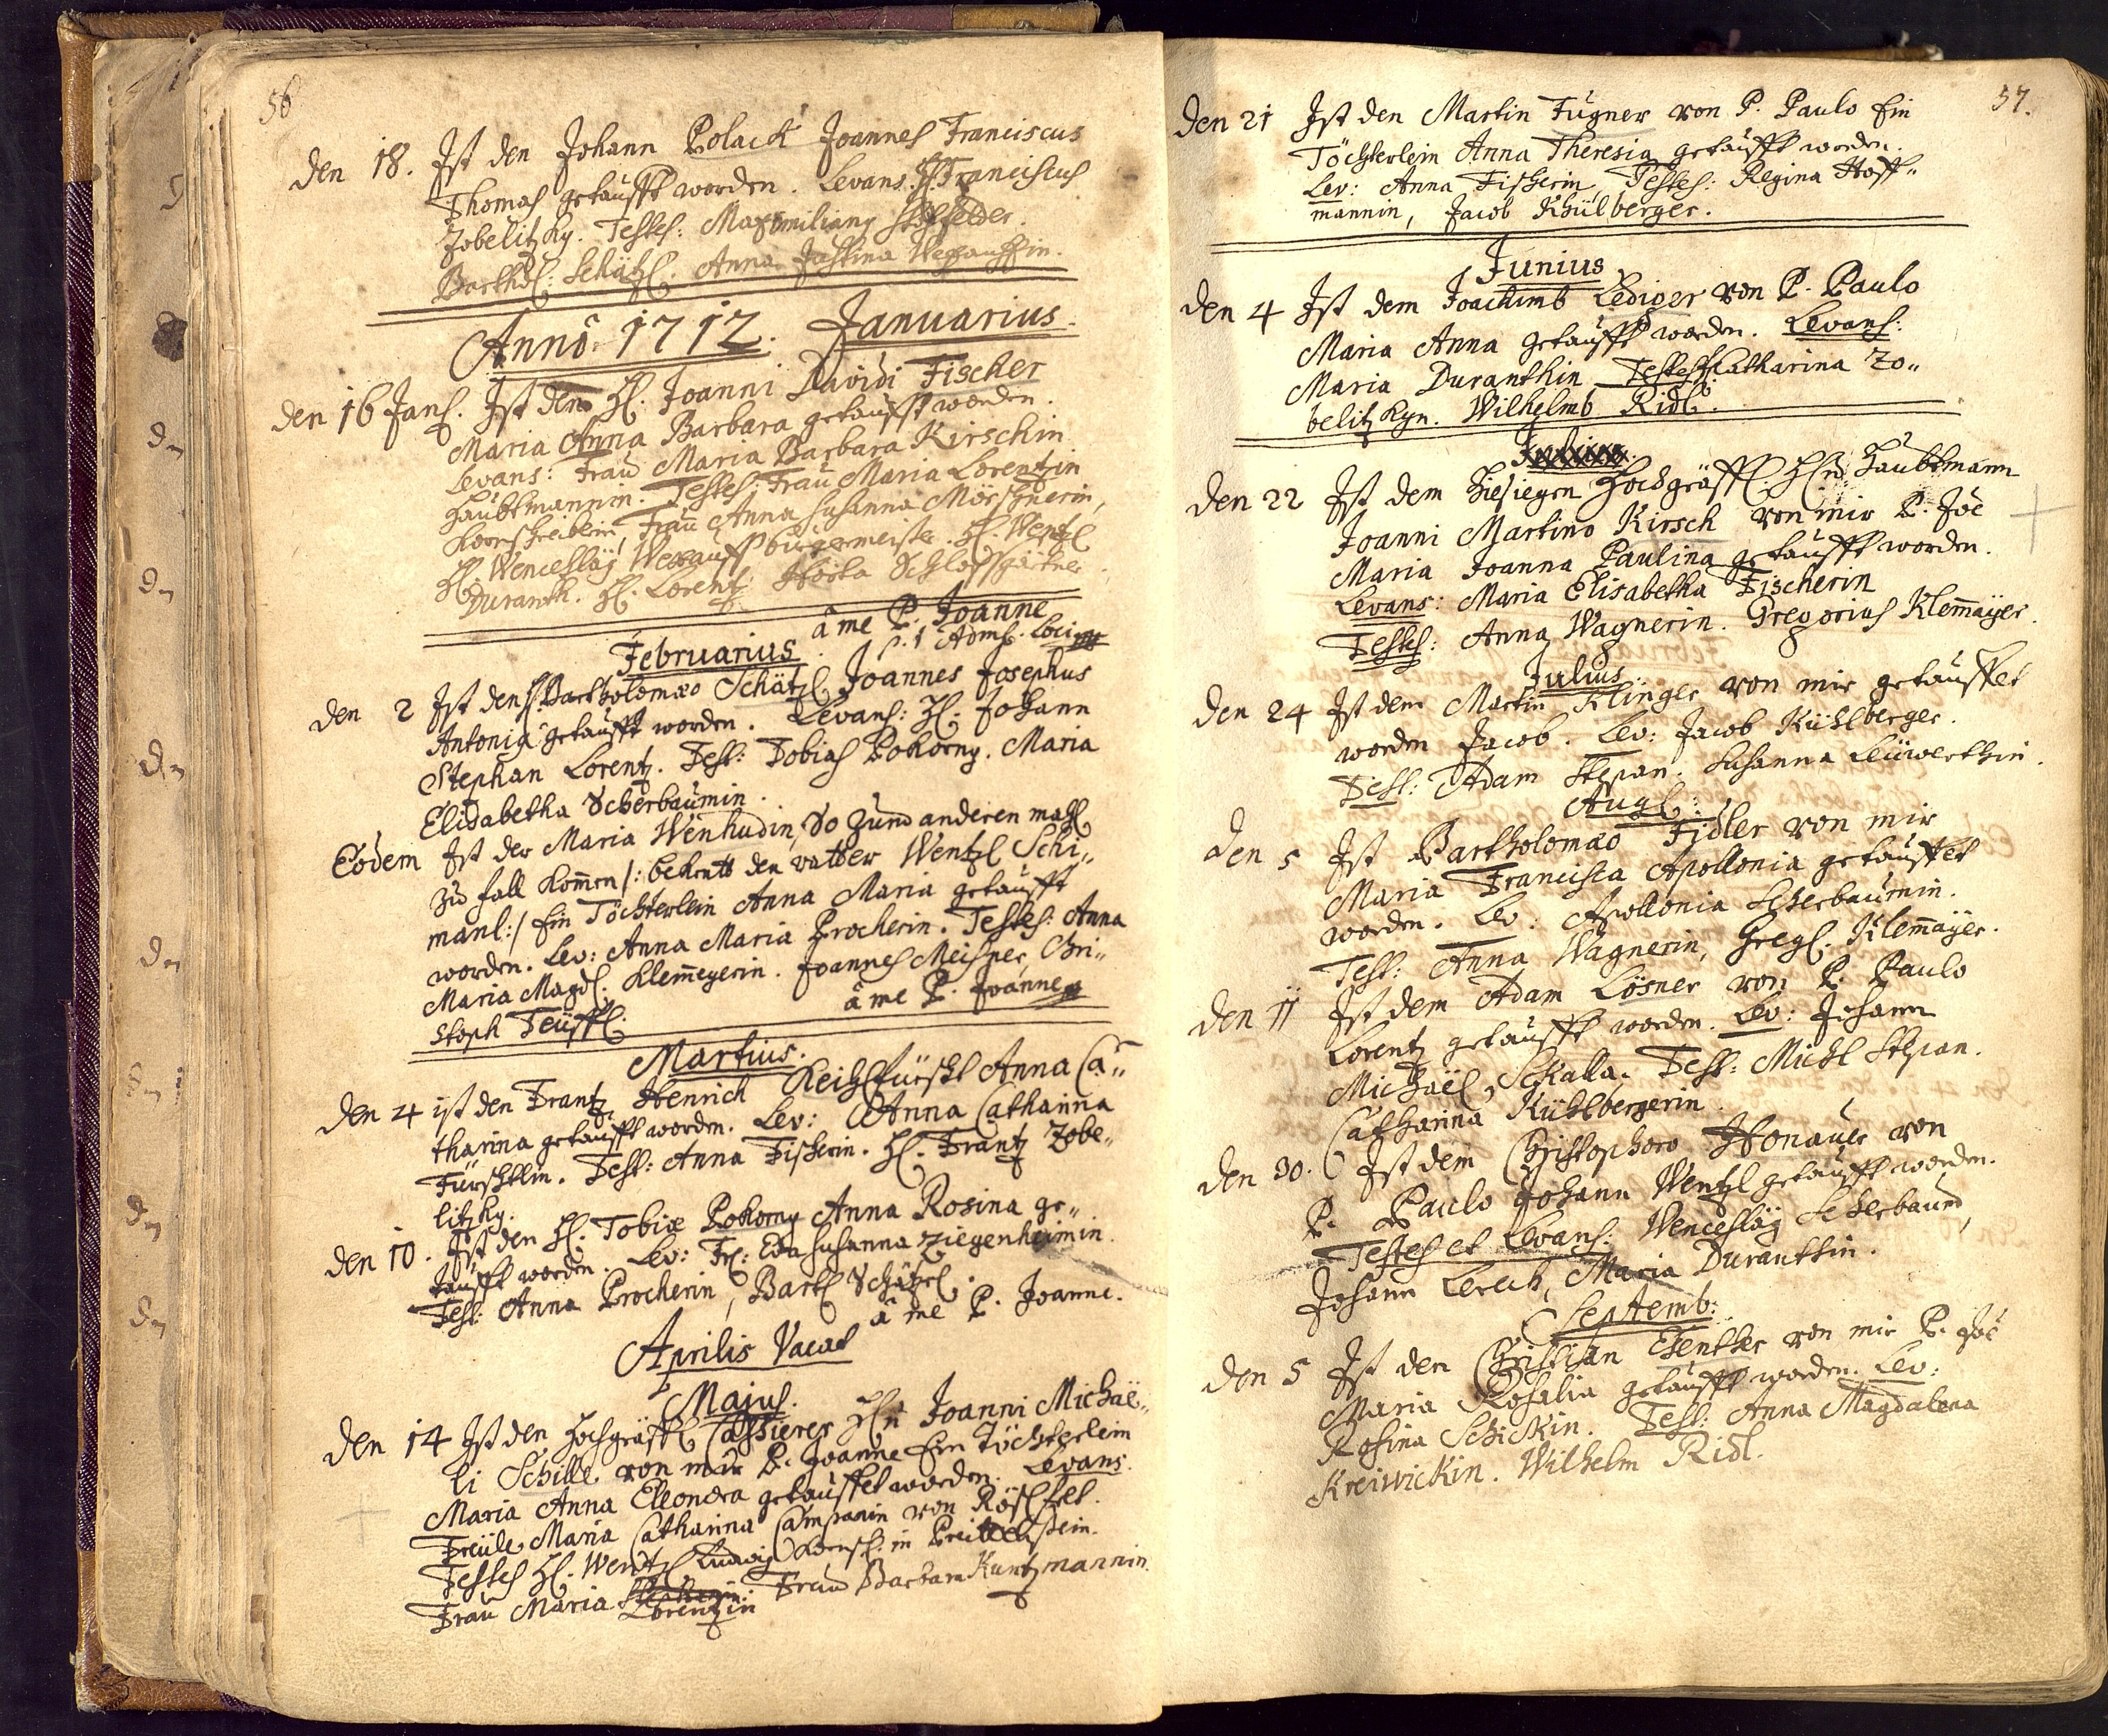 56
den 18. Ist den Johann Polack Joannes Franciscus
Thomas getaufft worden. Levans. H. Franciscus
Zobelitzky. Testes: Maximilianus
Barthol: Schätzl. Anna Justina
Anno 1712. Januarius.
den 16 Jan. Ist dem H. Joanni Davidi Fischer
Maria Anna Barbara getaufft worden.
Levans: Frau Maria Barbara Kirschin
Haubtmannin. Testes: Frau Maria Lorentzin
Kornschreiberin, Frau Anna Susanna Mörschnerin,
H. Wenceslaÿ burgermeister. H. Wentzl
Duranth. H. Lorentz Schlossgärtner.
â me P. Joanne
Februarius. Adm. Loci
den 2 Ist den H. Bartholomæo Schätzl Joannes Josephus
Antonig getaufft worden. Levans: H. Johann
Stephan Lorentz. Test: Tobias Pokorny. Maria
Elisabetha Scherbaumin.
Eodem Ist der Maria Wenhudin, so zum anderen mahl
zu fall kom̄en /: bekentt den vatter Wentzl Schi„
manl :/ Ein Töchterlein Anna Maria getaufft
worden. Lev: Anna Maria Procherin. Testes: Anna
Maria Magd. Klem̄eyerin. Joannes Meisner, Chri„
stoph Teüffl. â me P. Joanne
Martius.
den 4 ist den Frantz Henrich Anna Ca„
tharina getaufft worden. Lev: Anna Catharina
Fürschtlin. Test: Anna Fischerin. H. Frantz Zobe„
litzky.
den 10. Ist den H. Tobiæ Pokorny Anna Rosina ge„
taufft worden. Lev: Fr: Eva Susanna Ziegenheimin.
Test: Anna Procherin, Bartl Schätzel.
â me P. Joanne.
Aprilis Vacat
Majus.
den 14 Ist den Hochgräffl Cassierer Hn Joanni Michaë„
li Schille von mir P. Joanne Ein Töchterlein
Maria Anna Eleonora getauffet worden. Levans.
Freüle Maria Catharina Campanin von
Testes H. Wentzl Ludwig Kornsch: in Preittenstein.
Frau Maria Lorentzin Frau Barbara Kuntzmannin.
57.
Den 21 Ist den Martin Fugner von P. Paulo Ein
Töchterlein Anna Theresia getaufft worden.
Lev: Anna Fischerin, Testes: Regina Hoff„
mannin, Jacob Khülberger.
Junius
den 4 Ist dem Joachimb Lediger von P. Paulo
Maria Anna getaufft worden. Levans:
Maria Duranthin Testes Catharina Zo„
belitzkyn. Wilhelmb Ridl.
Den 22 Ist dem hiesiegen Hochgräffl. Hn Haubtmann
Joanni Martino Kirsch von mir P. Joē
Maria Joanna Paulina getaufft worden.
Levans: Maria Elisabetha Fischerin
Testes: Anna Wagnerin. Gregorius Klem̄aÿer.
Julius.
Den 24 Ist dem Martin Klinger von mir getauffet
worden Jacob. Lev: Jacob Kühlberger.
Test: Adam Stepan. Susanna Leüwerthin.
Aug:
den 5 Ist Bartholomæo Fidler von mir
Maria Francisca Apollonia getauffet
worden. Lev: Apollonia Scherbaumin.
Test: Anna Wagnerin, Greg. Klem̄aÿer.
den 11 Ist dem Adam Lösner von P. Paulo
Lorentz getaufft worden. Lev: Johann
Michaël Skalla. Test: Michl Stepan.
Catharina Kühlbergerin.
den 30. Ist dem Christophoro Honauer von
P. Paulo Johann Wentzl getaufft worden.
Testes et Levans: Wenceslaÿ Scherbaum,
Johann Lerch, Maria Duranthin.
Septemb:
den 5 Ist den Christian von mir P. Joē
Maria Rosalia getaufft worden. Lev:
Rosina Schickin. Test: Anna Magdalena
Kreiwickin. Wilhelm Ridl.